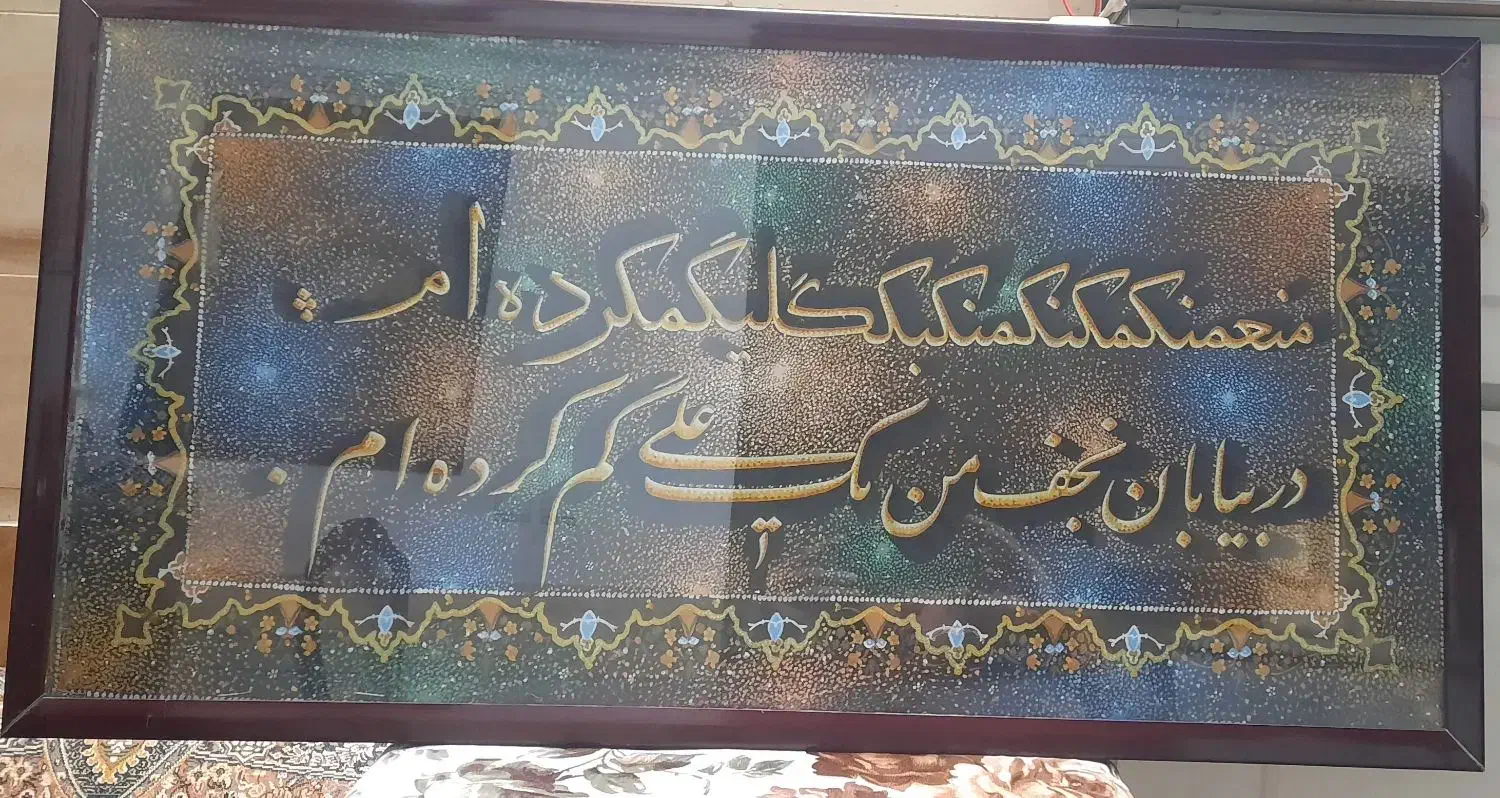 منعمنکمکنکمنکبکگلیگمکرده ام
در بیابان نجف من یک علی گم کرده ام